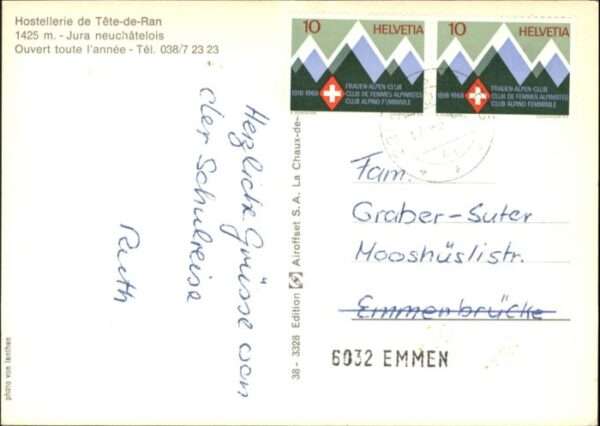 Hostellerie de Tête-de-Ran
1425 m. - Jura neuchâtelois
Ouvert toute l'année - Tél. 038/7 23 23
Herzliche Grüsse von
der Schulreise
Ruth
38 - 3328 Edition Airoffset S.A. La Chaux-de-
photo von Ianthen
10 HELVETIA
FRAUEN-ALPEN-CLUB
1918-1968 CLUB DE FEMMES ALPINISTES
CLUB ALPINO FEMMINILE
10 HELVETIA
FRAUEN-ALPEN-CLUB
1918-1968 CLUB DE FEMMES ALPINISTES
CLUB ALPINO FEMMINILE
Fam.
Graber-Suter
Mooshüslistr.
Emmenbrücke
6032 EMMEN